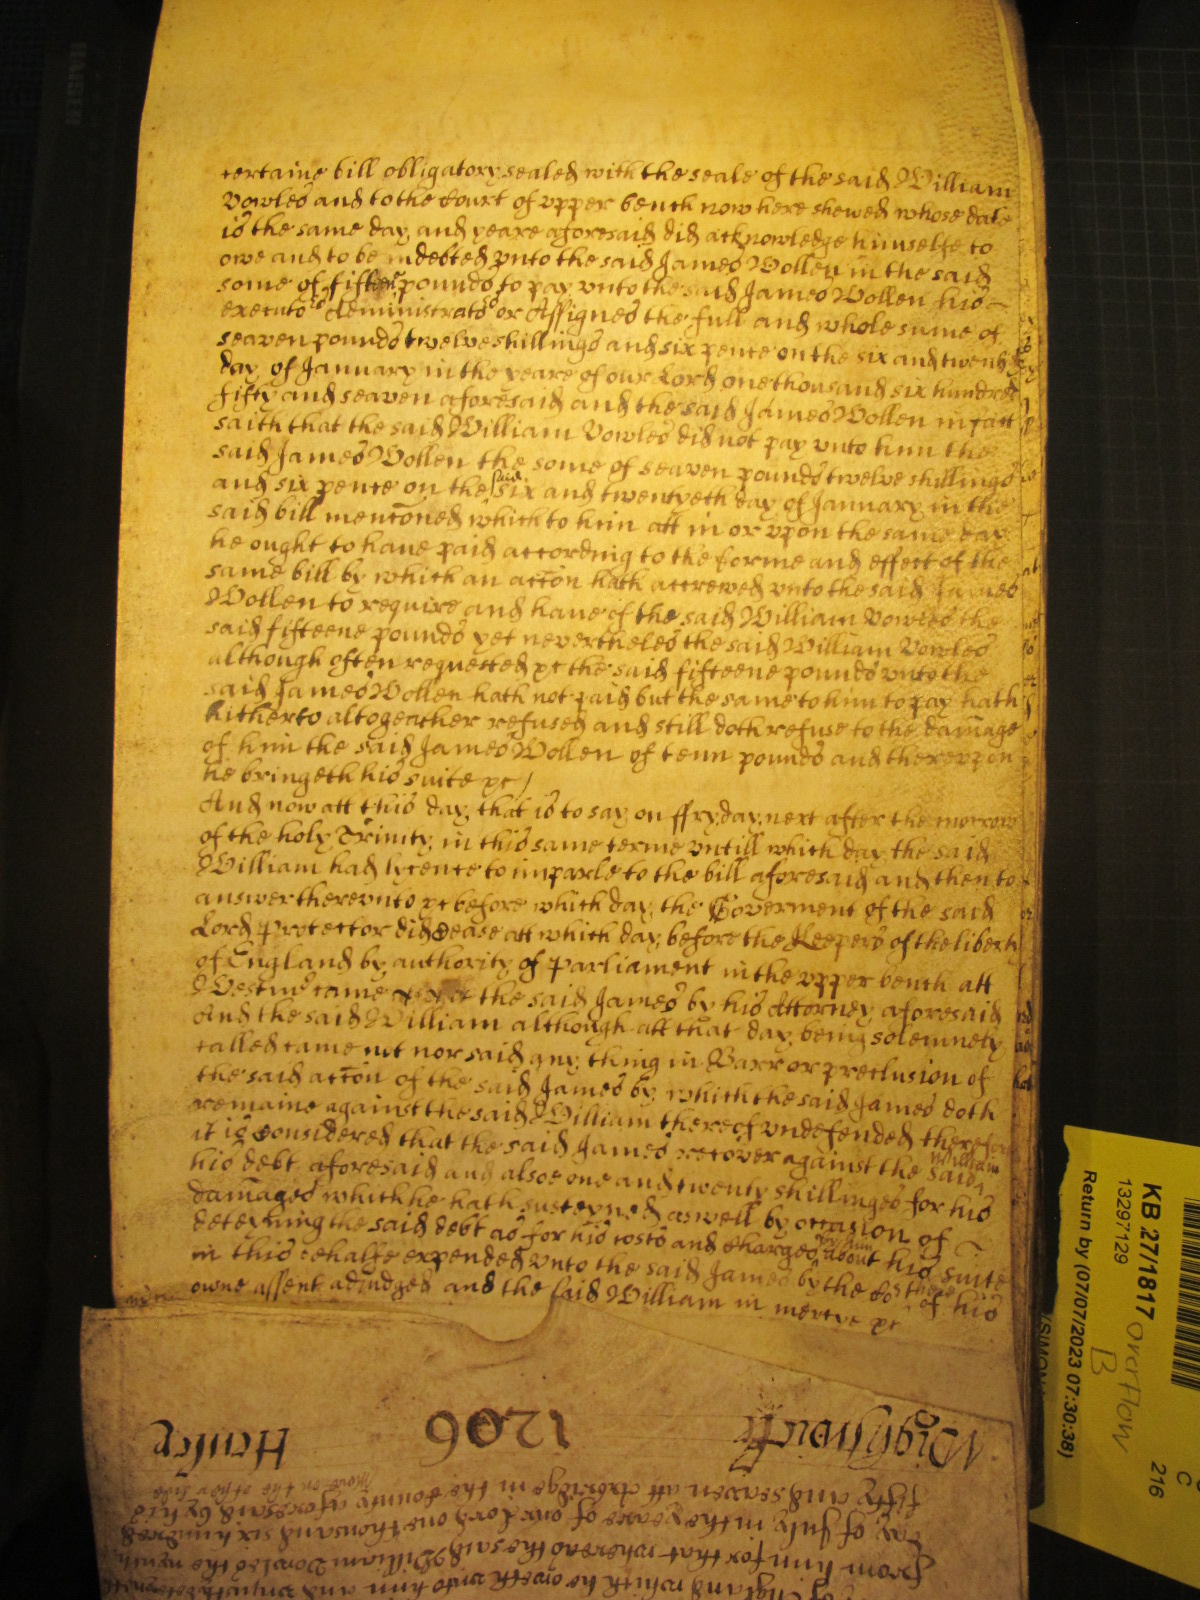 certaine bill obligatory sealed with the seale of the said William
Vowles and to the Court of vpper bench now here shewed whose date
is the same day and yeare aforesaid did acknowledge himselfe to
owe and to be indebted vnto the said James Wollen in the said
some of fifteen pounds to pay vnto the said James Wollen his
executors Administrators or Assignes the full and whole sume of
seaven pounds twelve shillings and six pence on the six and twenty
day of January in the yeare of our Lord one thousand six hundred
fifty and seaven aforesaid and the said James Wollen in fact
saith that the said William Vowles did not pay vnto him the
said James Wollen the some of seaven pounds twelve shillings
and six pence on the said six and twentyeth day of January in the
said bill menconed which to him att in or vpon the same day
he ought to haue paid according to the forme and effect of the
same bill by which an accon hath accrewed vnto the said James
Wollen to require and haue of the said William Vowles the
said fifteene pounds yet neverthelesse the said William Vowles
although often requested &c the said fifteene pounds vnto the
said James Wollen hath not paid but the same to him to pay hath
hitherto altogeather refused and still doth refuse to the damage
of him the said James Wollen of tenn pounds and therevpon
he bringeth his suite &c /
And now att this day that is to say on ffryday next after the morrow
of the holy Trinity in this same terme vntill which day the said
William had lycence to imparle to the bill aforesaid and then to
answer therevnto &c before which day the Goverment of the said
Lord Protector did Cease att which day before the Keepers of the liberty
of England by authority of Parliament in the vpper bench att
Westmr came the said James by his Attorney aforesaid
And the said William although att that day being solemnely
called came not nor said any thing in Barr or preclusion of
the said accon of the said James by which the said James doth
remaine against the said William thereof vndefended therefore
it is Considered that the said James recover against the said William
his debt aforesaid and alsoe one and twenty shillinges for his
damages which he hath susteyned aswell by occasion of
deteyning the said debt as for his costs and Charges by him about his suite
in this behalfe expended vnto the said James by the Cort there of his
owne assent adiudged and the said William in mercye &c
Wightwicke 1206 Henley
fifty and seaven att Axbridge in the County aforesaid by his
More on the other side
day of July in the yeare of our Lord one thousand six hundred
from him for that whereas the said William Vowles the nynth
of England which he oweth vnto him and vniustly deteyneth
KB 27/1817
13297129
Return by (07/07/2023 07:30:38)
overflow
B
C
216